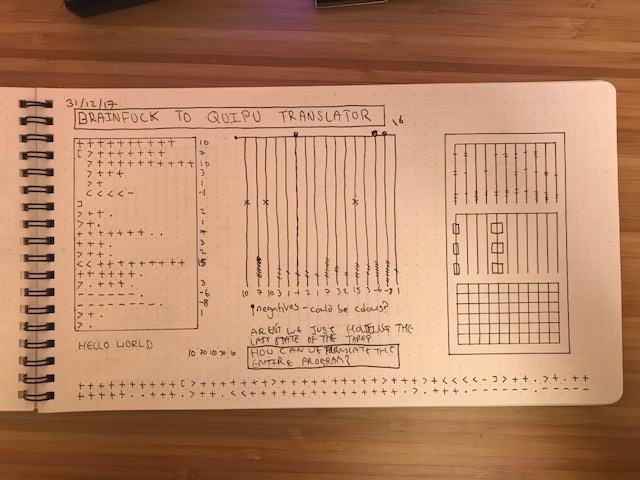 31/12/17
BRAINFUCK TO QUIPU TRANSLATOR
16
++++++++++ 10
[ >+++++++ 7
>++++++++++ 10
>+++ 3
>+ 1
<<<<- -1
]
>++. 2
>+. 1
+++++++.. 7
+++. 3
>++. 2
<<+++++++++++++++. 15
>.+++. 3
------. -6
--------. -8
>+. 1
>.
HELLO WORLD
10 7 10 3 1 -1 2 1 7 3 2 15 3 -6 -8 1
negatives - could be colours?
AREN'T WE JUST HOLDING THE
LAST STATE OF THE TAPE?
HOW CAN WE TRANSLATE THE
ENTIRE PROGRAM?
10 70 110 30 10